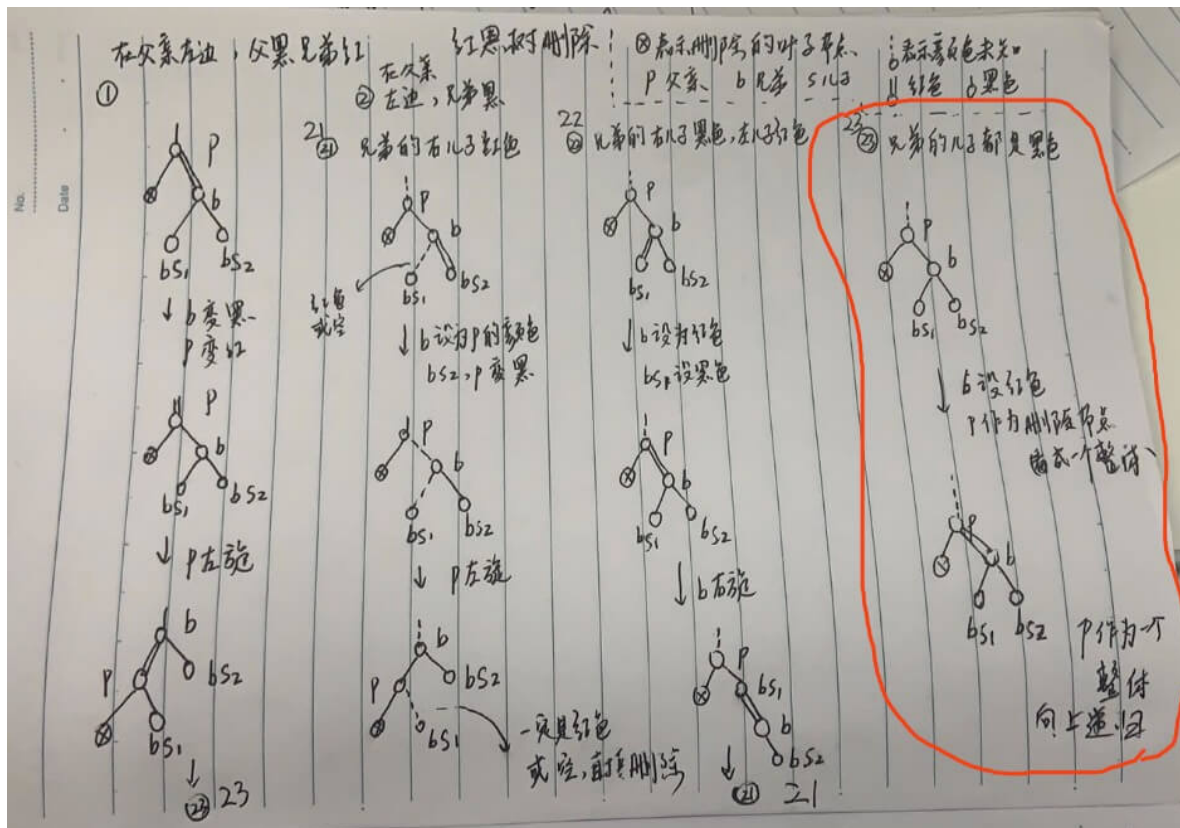 No.
Date
红黑树删除
ⓧ表示删除的叶子节点
P 父亲 b 兄弟 s 儿子
表示颜色未知
红色 黑色
在父亲左边,父黑兄弟红
①
P
b
bS₁
bS₂
↓ b变黑
P变红
P
b
bS₁
bS₂
↓ P左旋
b
P
bS₂
bS₁
↓
㉓ 23
② 在父亲
左边,兄弟黑
21
㉑ 兄弟的右儿子红色
P
b
bS₁
bS₂
红色
或空
↓ b设为P的颜色
bS₂,P变黑
P
b
bS₁
bS₂
↓ P左旋
b
P
bS₂
bS₁
一定是红色
或空,直接删除
22
㉒ 兄弟的右儿子黑色,左儿子红色
P
b
bS₁
bS₂
↓ b设为红色
bS₁设黑色
P
b
bS₁
bS₂
↓ b右旋
P
bS₁
b
bS₂
↓
㉑ 21
23
㉓ 兄弟的儿子都是黑色
P
b
bS₁
bS₂
↓ b设红色
P作为删除节点
看成一个整体
P
b
bS₁
bS₂
P作为一个
整体
向上递归